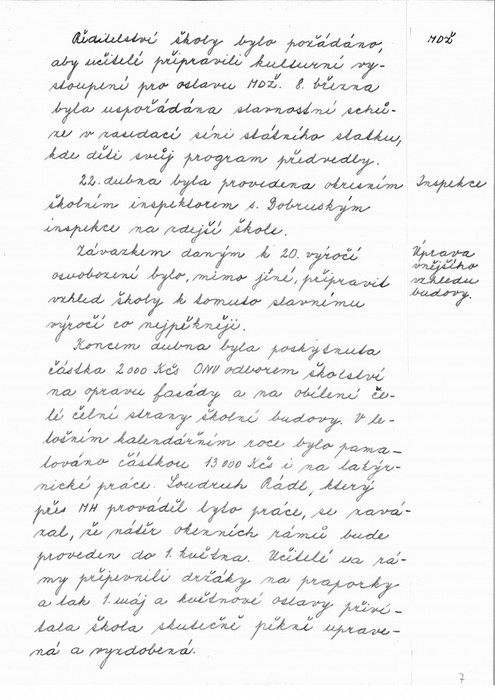 Ředitelství školy bylo požádáno, MDŽ
aby učitelé připravili kulturní vy-
stoupení pro oslavu MDŽ. 8. března
byla uspořádána slavnostní schů-
ze v zasedací síni státního statku,
kde děti svůj program předvedly.
22. dubna byla provedena okresním Inspekce
školním inspektorem s. Dobruským
inspekce na zdejší škole.
Závazkem daným k 20. výročí Úprava
osvobození bylo, mimo jiné, připravit vnějšího
vzhled školy k tomuto slavnému vzhledu
výročí co nejpěkněji. budovy.
Koncem dubna byla poskytnuta
částka 2 000 Kčs ONV odborem školství
na opravu fasády a na obílení če-
lé čelní strany školní budovy. V le-
tošním kalendářním roce bylo pama-
továno částkou 13 000 Kčs i na lakýr-
nické práce. Soudruh Rádl, který
přes MH prováděl tyto práce, se zavá-
zal, že nátěr okenních rámů bude
proveden do 1. května. Učitelé na rá-
my připevnili držáky na praporky
a tak 1. máj a květnové oslavy přiví-
tala škola skutečně pěkně uprave-
ná a vyzdobená.
7